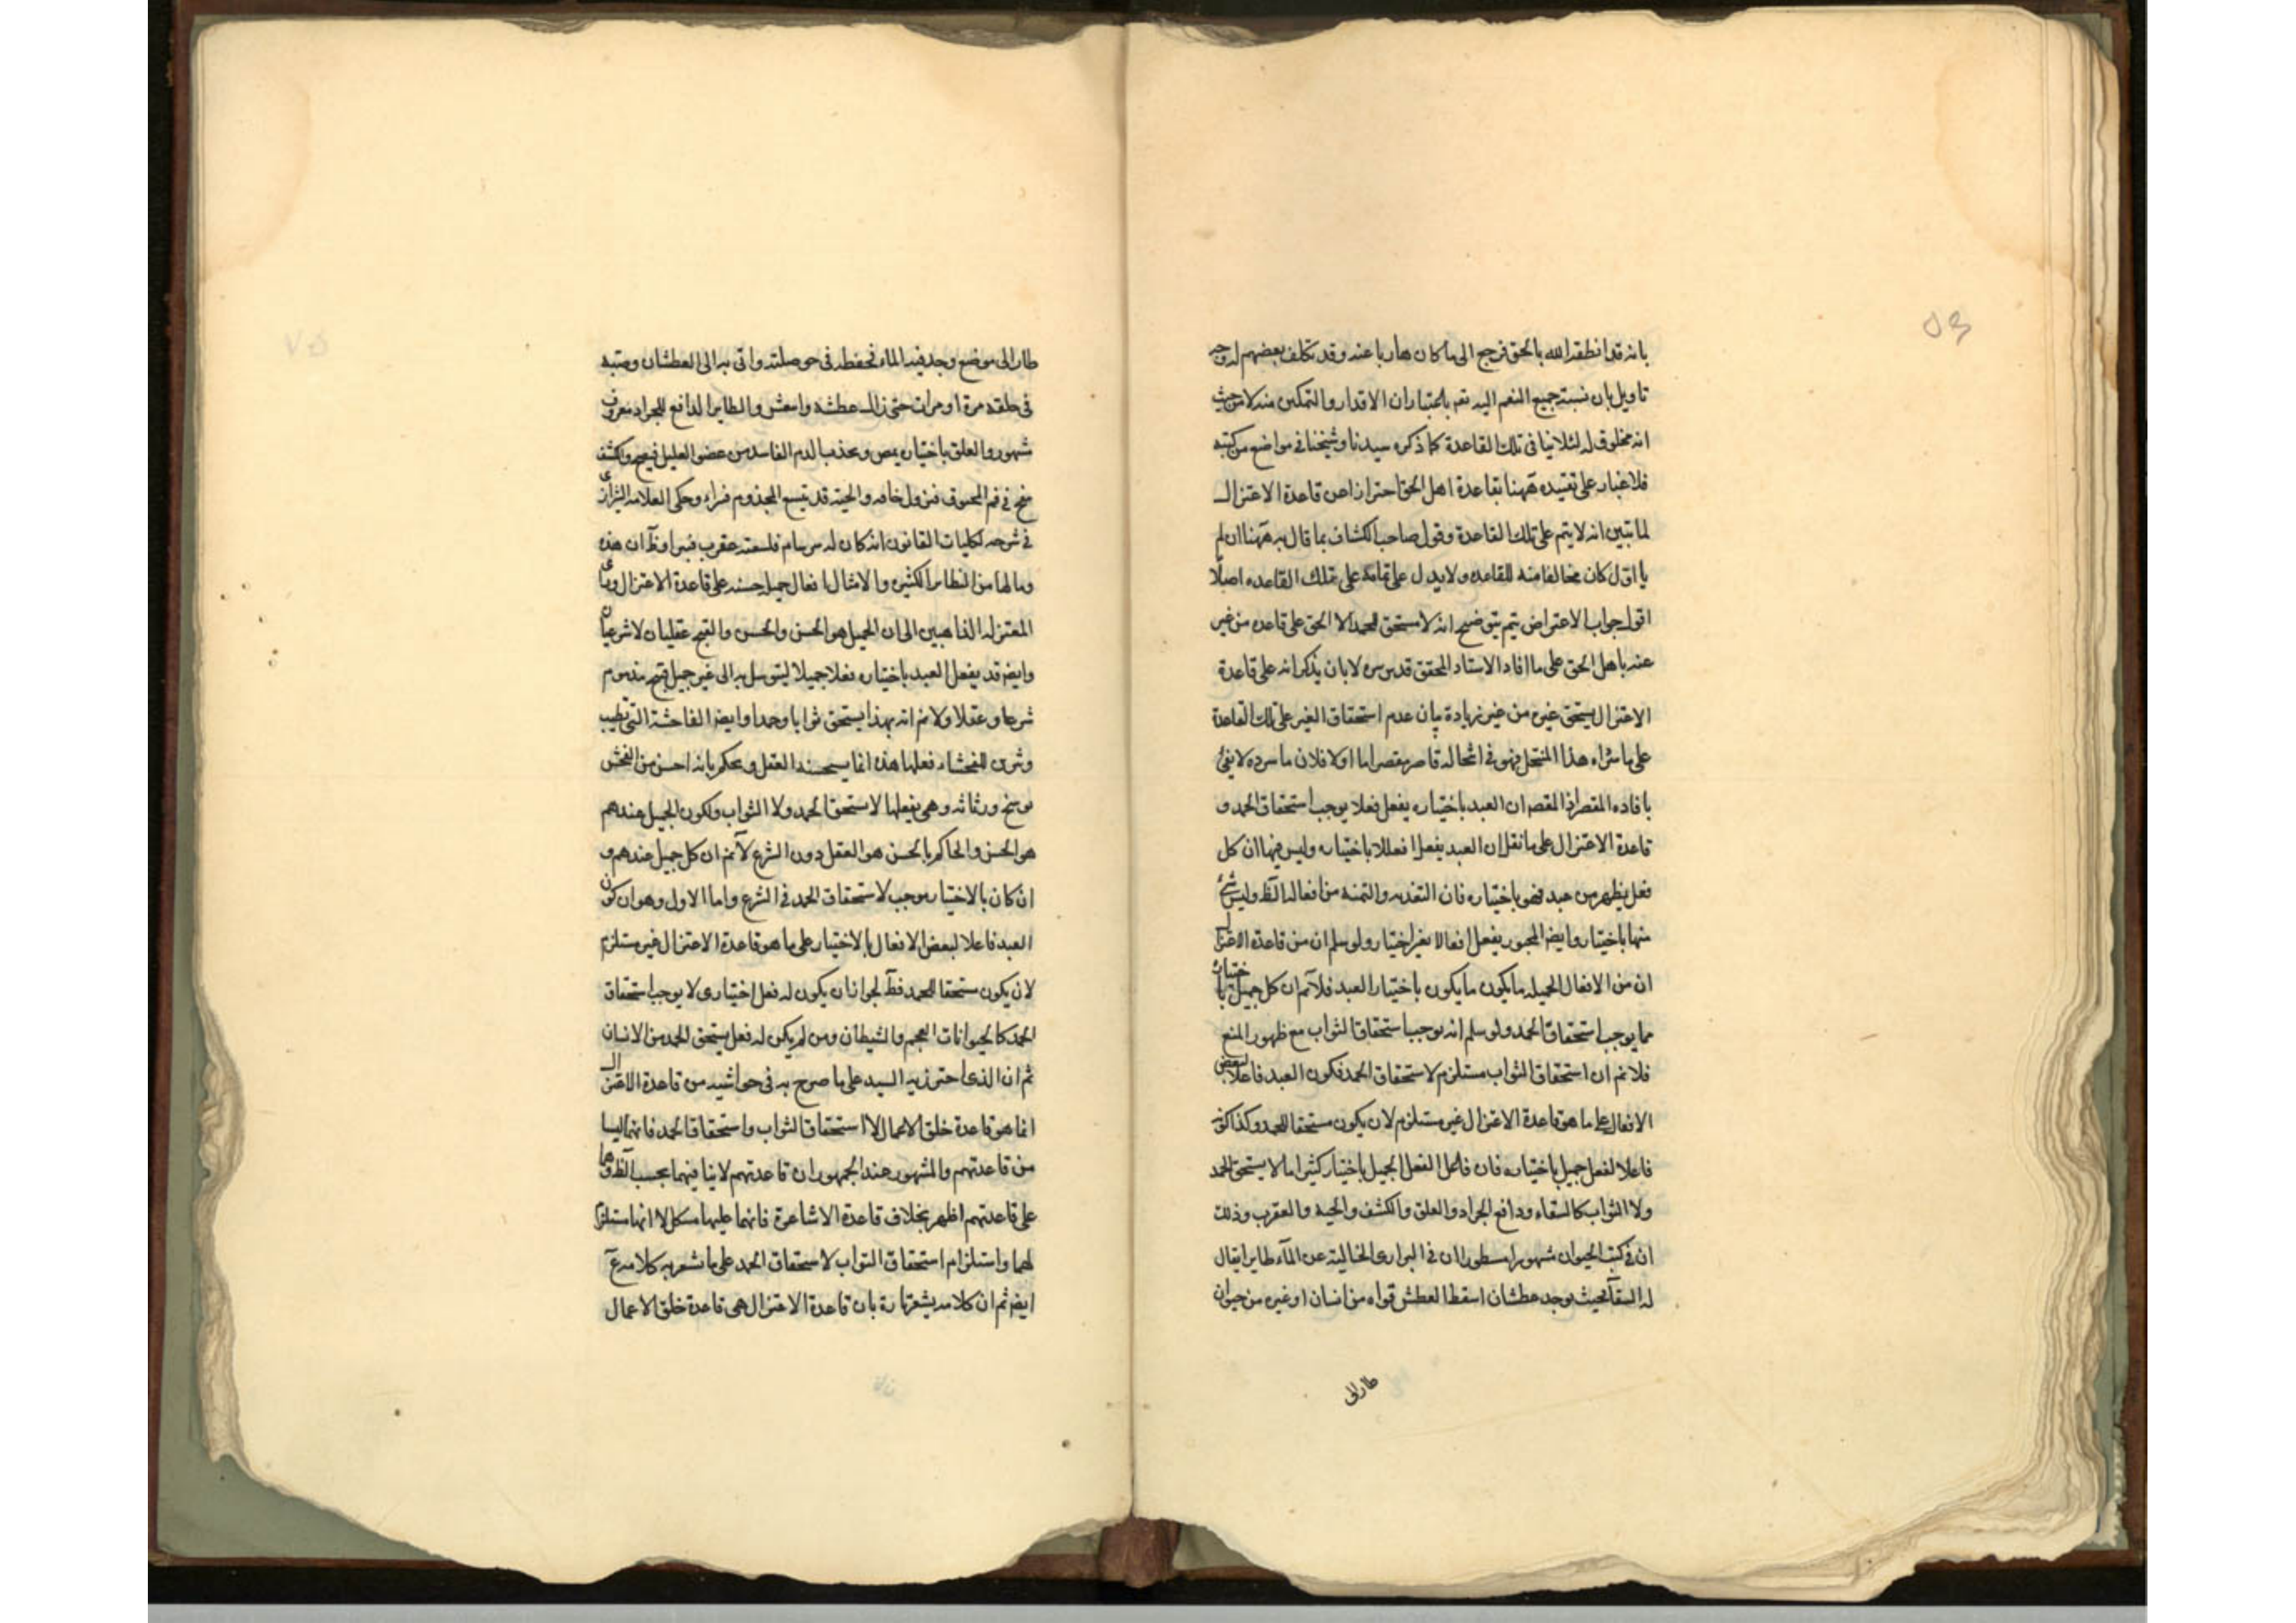 بانه قد انطقه الله بالحق فرجع الى ما كان هاربا عنه وقد تكلف بعضهم له وجه
تاويل بان نسبته جميع النعم اليه تعم باعتبار ان الاقدار والتمكين منه لا من حيث
انه مخلوق له لئلا ينافى تلك القاعدة كما ذكره سيدنا وشيخنا فى مواضع من كتبه
فلا غبار على تقييده ههنا بقاعدة اهل الحق احترازا عن قاعدة الاعتزال
لما تبين انه لا يتم على تلك القاعدة وقول صاحب الكشاف بما قال به ههنا ان لم
ياول كان مخالفا منه للقاعده ولا يدل على تمامه على تلك القاعده اصلا
اقول جواب الاعتراض يتم بتوضيح انه لا يستحق الحمد الا الحق على قاعده من غير
عنه باهل الحق على ما افاد الاستاد المحقق قدس سره لا بان يذكر انه على قاعدة
الاعتزال يستحق غيره من غير زيادة بيان عدم استحقاق الغير على تلك القاعدة
على ما شراه هذا المنتحل فهو فى انتحاله قاصر مقصر اما اولا فلان ما سرده لا يفى
بافاده المقصر اذ المقصه ان العبد باختياره يفعل فعلا يوجب استحقاق الحمد و
قاعدة الاعتزال على ما نقل ان العبد يفعل افعالا باختياره وليس فيها ان كل
فعل يظهر من عبد فهو باختياره فان التغذيه والتمنه من افعاله الظ وليس شئ
منها باختياره وايضا المجبور يفعل افعالا بغير اختيار ولو سلم ان من قاعدة الاعتزال
ان من الافعال الجميله ما يكون ما يكون باختيار العبد فلانم ان كل جميل باختياره
مما يوجب استحقاق الحمد ولو سلم انه يوجب استحقاق الثواب مع ظهور المنع
فلا نم ان استحقاق الثواب مستلزم لاستحقاق الحمد فكون العبد فاعلا لبعض
الافعال على ما هو قاعدة الاعتزال غير مستلزم لان يكون مستحقا للحمد وكذا كونه
فاعلا لفعل جميل باختياره فان فاعل الفعل الجميل باختيار كثيرا ما لا يستحق الحمد
ولا الثواب كالسقاء ودافع الجراد والعلق والكشف والحيه والعقرب وذلك
ان فى كتب الحيوان مشهورا مسطورا ان فى البرارى الخالية عن الماء طايرا يقال
له السقا بحيث يوجد عطشان اسقط العطش قواه من انسان او غيره من حيوان
طار الى
طار الى موضع وجد فيه الماء فحفظه فى حوصلته واتى به الى العطشان وصبه
فى حلقه مرة او مرات حتى زال عطشه وانتعش والطاير الدافع للجراد معروف
مشهور والعلق باختياره يمص ويجذب الدم الفاسد من عضو العليل فيصح والكشف
فى فم المخنوق فزول خناقه والحيه قد تلسع المجذوم فبراء وحكى العلامه الشيرازى
فى شرحه لكليات القانون انه كان له سرسام فلسعته عقرب فبرا وظ ان هذه
وما لها من النظاير الكثيره والامثال افعال جميله حسنه على قاعدة الاعتزال ورأى
المعتزله الذاهبين الى ان الجميل هو الحسن والحسن والقبح عقليان لا شرعيان
وايضا قد يفعل العبد باختياره فعلا جميلا ليتوسل به الى غير جميل قبيح مذموم
شرعا وعقلا ولا نم انه بهذا يستحق ثوابا وحمدا وايضا الفاحشة التى تطيب
وتزين للفحشاء فعلها هذه انما يستحسنه العقل ويحكم بانه احسن من الفحش
بوسخ ورثاثه وهى بفعلها لا تستحق الحمد ولا الثواب ولكون الجميل عندهم
هو الحسن والحاكم بالحسن هو العقل دون الشرع لانم ان كل جميل عندهم و
ان كان بالاختيار موجب لاستحقاق الحمد فى الشرع واما الاول وهو ان كون
العبد فاعلا لبعض الافعال بالاختيار على ما هو قاعدة الاعتزال غير مستلزم
لان يكون مستحقا للحمد فظ لجواز ان يكون له فعل اختيارى لا يوجب استحقاق
الحمد كالحيوانات العجم والشيطان ومن لم يكن له فعل يستحق الحمد من الانسان
ثم ان الذى احترز به السيد على ما صرح به فى حواشيه من قاعدة الاعتزال
انما هو قاعدة خلق الاعمال لا استحقاق الثواب واستحقاق الحمد فانهما ليسا
من قاعدتهم والمشهور عند الجمهور ان قاعدتهم لا ينافيهما بحسب الظ وهما
على قاعدتهم اظهر بخلاف قاعدة الاشاعرة فانهما عليها مشكل لا انها مستلزمة
لهما واستلزام استحقاق الثواب لاستحقاق الحمد على ما تشعر به كلامه
ايضا ثم ان كلامه يشعر تارة بان قاعدة الاعتزال هى قاعدة خلق الاعمال